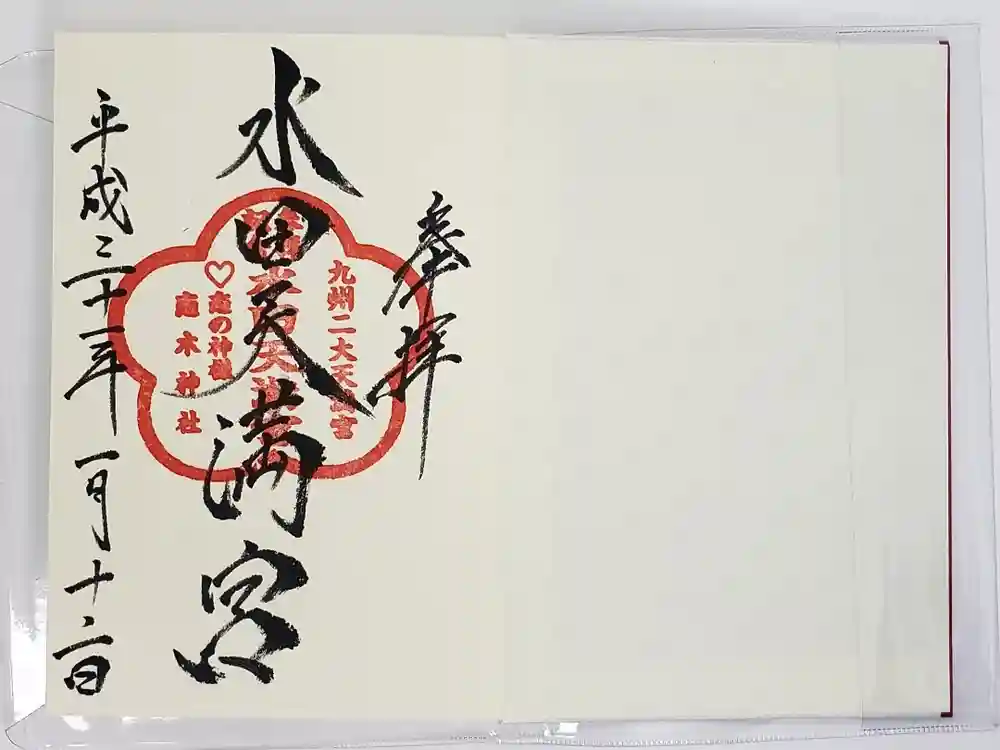 奉拝
水田天満宮
平成三十一年一月十六日
九州二大天満宮
水田天満宮
♡恋の神様
恋木神社